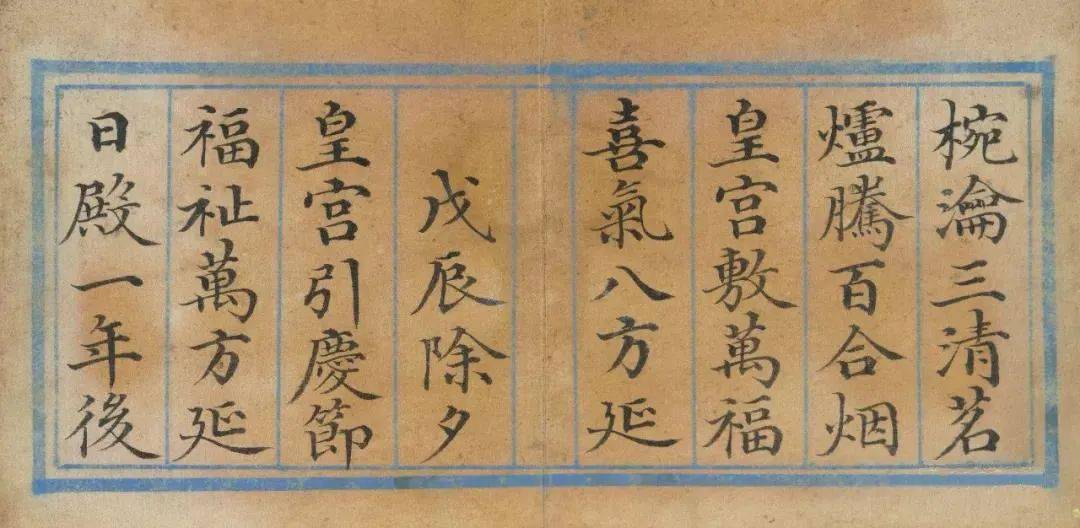 椀瀹三清茗
爐騰百合烟
皇宫敷萬福
喜氣八方延
戊辰除夕
皇宫引慶節
福祉萬方延
日殿一年後